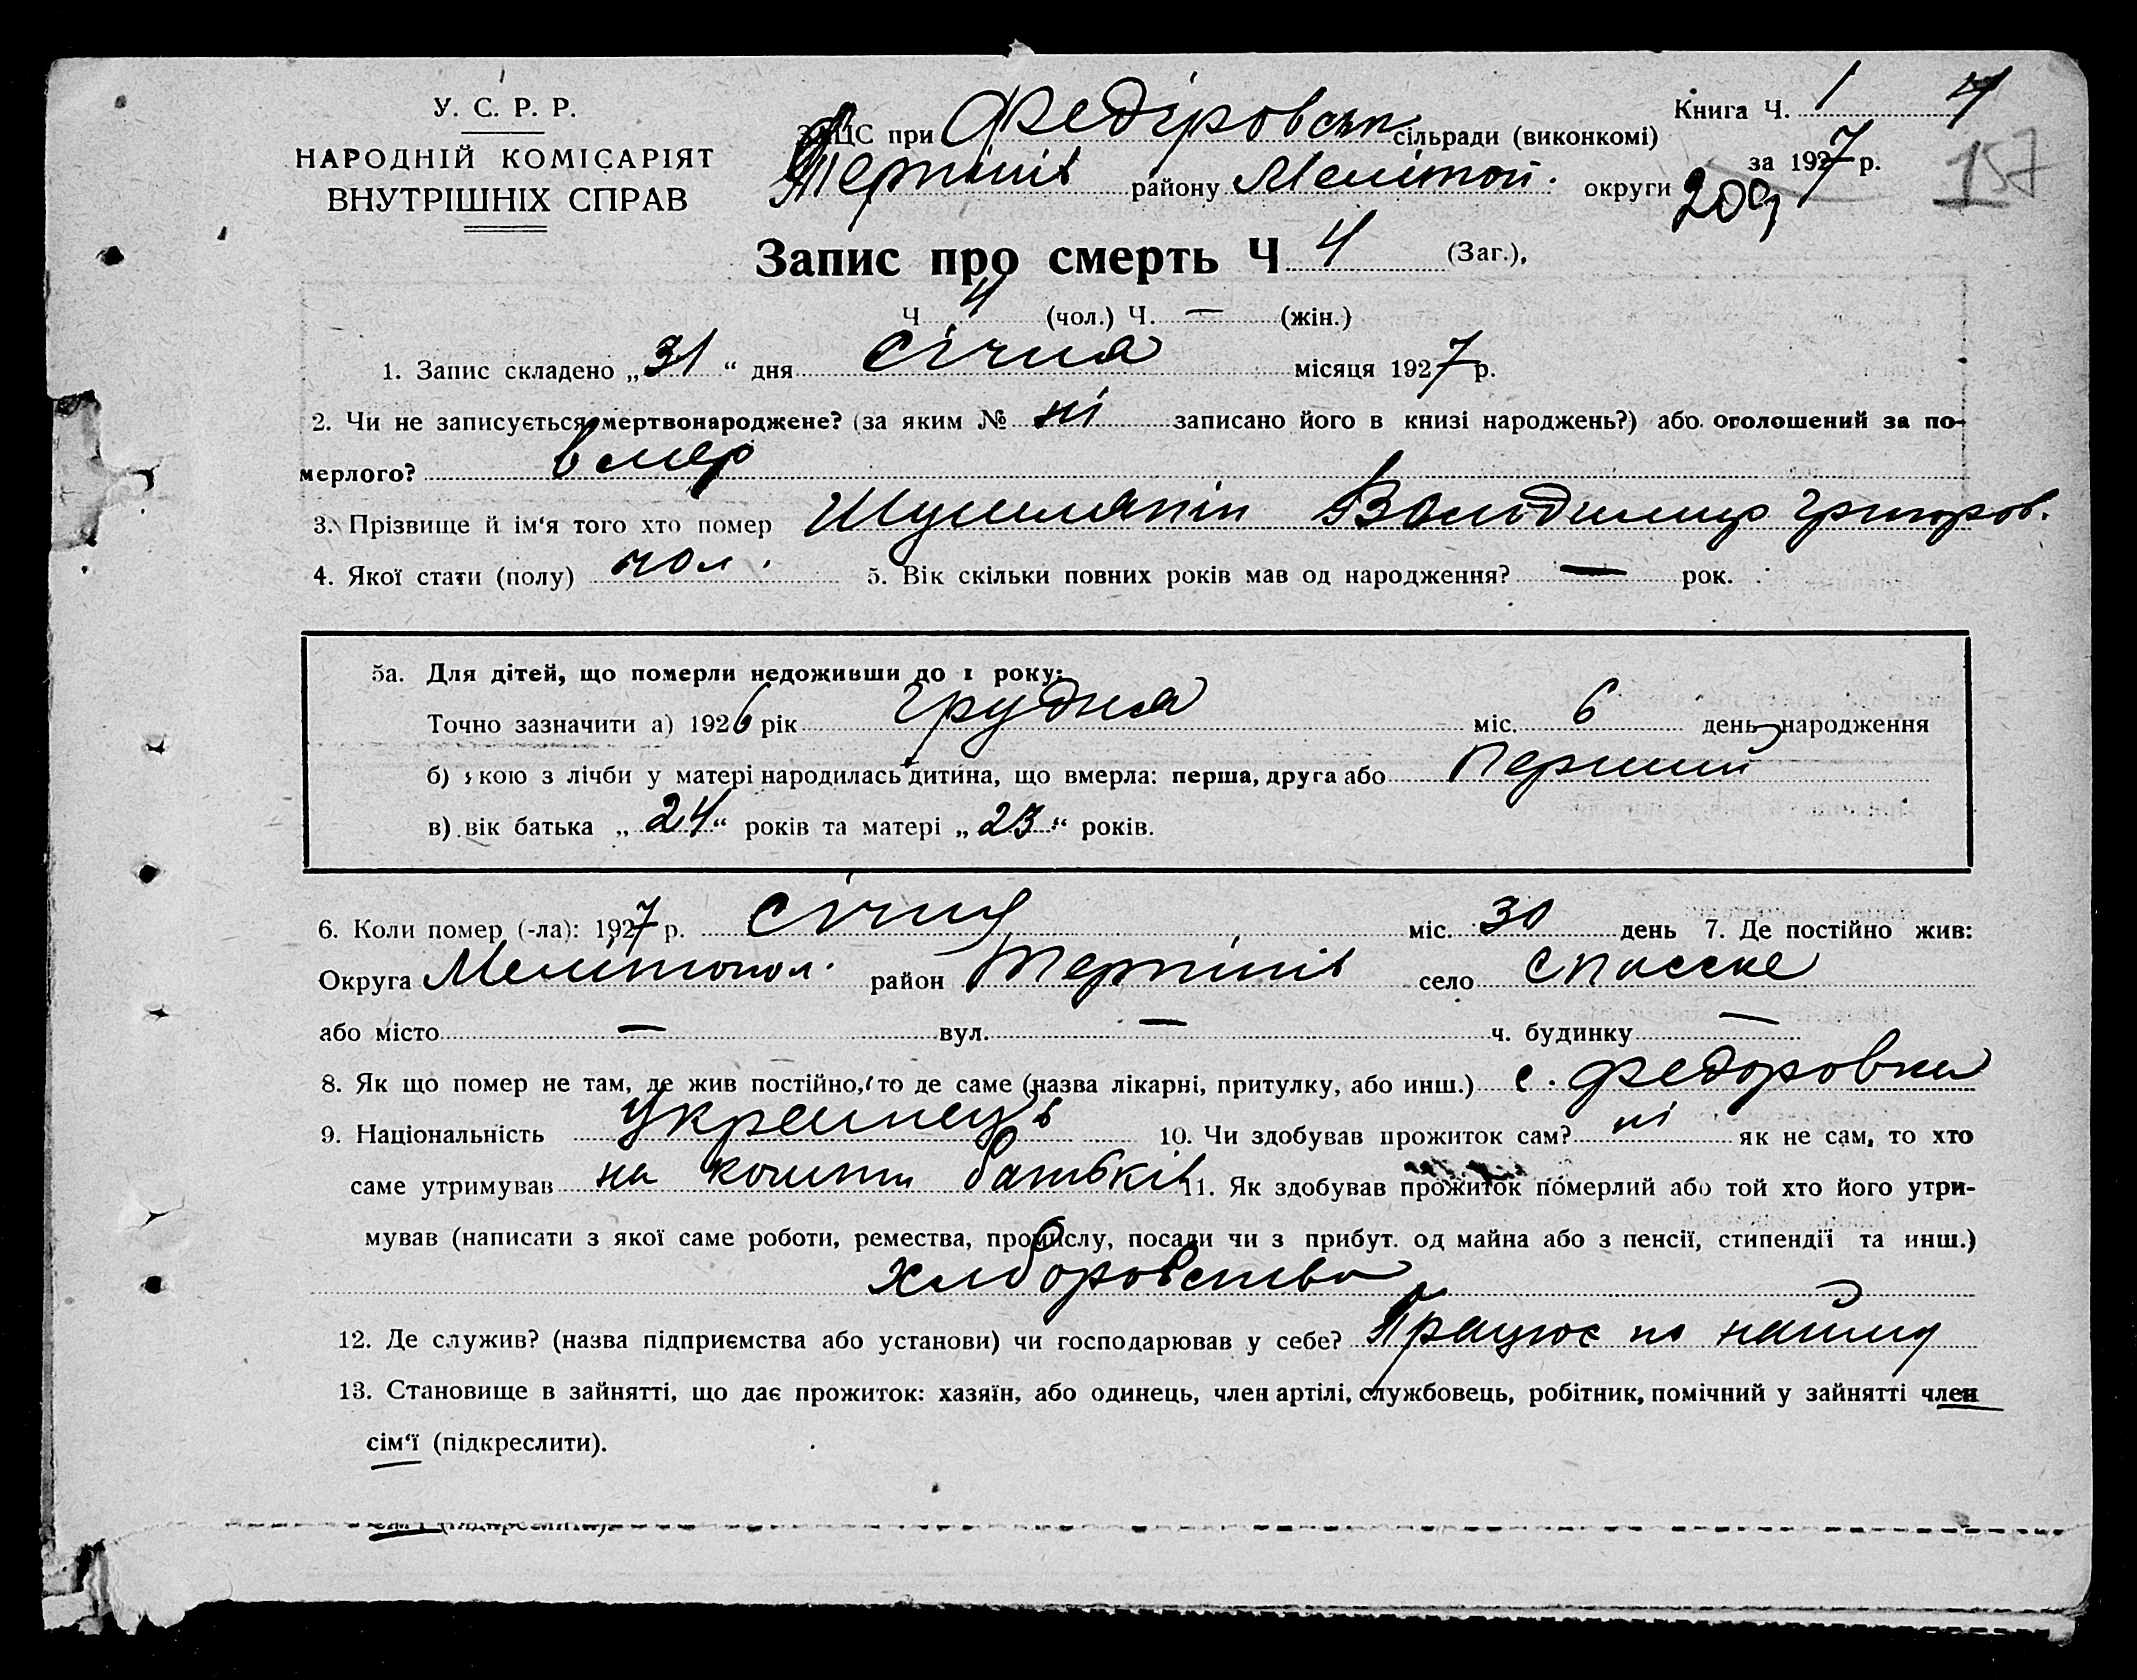 У. С. Р. Р.
НАРОДНІЙ КОМІСАРІЯТ
ВНУТРІШНІХ СПРАВ
ЗАЦС при Федіровськ сільради (виконкомі)
Терпінів району Мелітоп. округи
Книга Ч. 1 4
за 1927 р.
157
209
Запис про смерть Ч 4 (Заг.),
Ч 4 (чол.) Ч. — (жін.)
1. Запис складено „31“ дня січня місяця 1927 р.
2. Чи не записується мертвонароджене? (за яким № ні записано його в книзі народжень?) або оголошений за по-
мерлого? вмер
3. Прізвище й ім‘я того хто помер Шушляпін Володимир Григоров.
4. Якої стати (полу) чол. 5. Вік скільки повних років мав од народження? — рок.
5а. Для дітей, що померли недоживши до 1 року:
Точно зазначити а) 1926 рік грудня міс. 6 день народження
б) якою з лічби у матері народилась дитина, що вмерла: перша, друга або перший
в) вік батька „24“ років та матері „23“ років.
6. Коли помер (-ла): 1927 р. січня міс. 30 день 7. Де постійно жив:
Округа Мелітопол. район Терпінів село Спасске
або місто — вул. — ч. будинку —
8. Як що помер не там, де жив постійно, то де саме (назва лікарні, притулку, або инш.) с. Федоровка
9. Національність Украінець 10. Чи здобував прожиток сам? ні як не сам, то хто
саме утримував на кошти батьків 11. Як здобував прожиток померлий або той хто його утри-
мував (написати з якої саме роботи, ремества, промислу, посади чи з прибут. од майна або з пенсії, стипендії та инш.)
хлборобство
12. Де служив? (назва підприємства або установи) чи господарював у себе? Працює по найму
13. Становище в зайнятті, що дає прожиток: хазяїн, або одинець, член артілі, службовець, робітник, помічний у зайнятті член
сім‘ї (підкреслити).
сім‘ї (підкреслити).